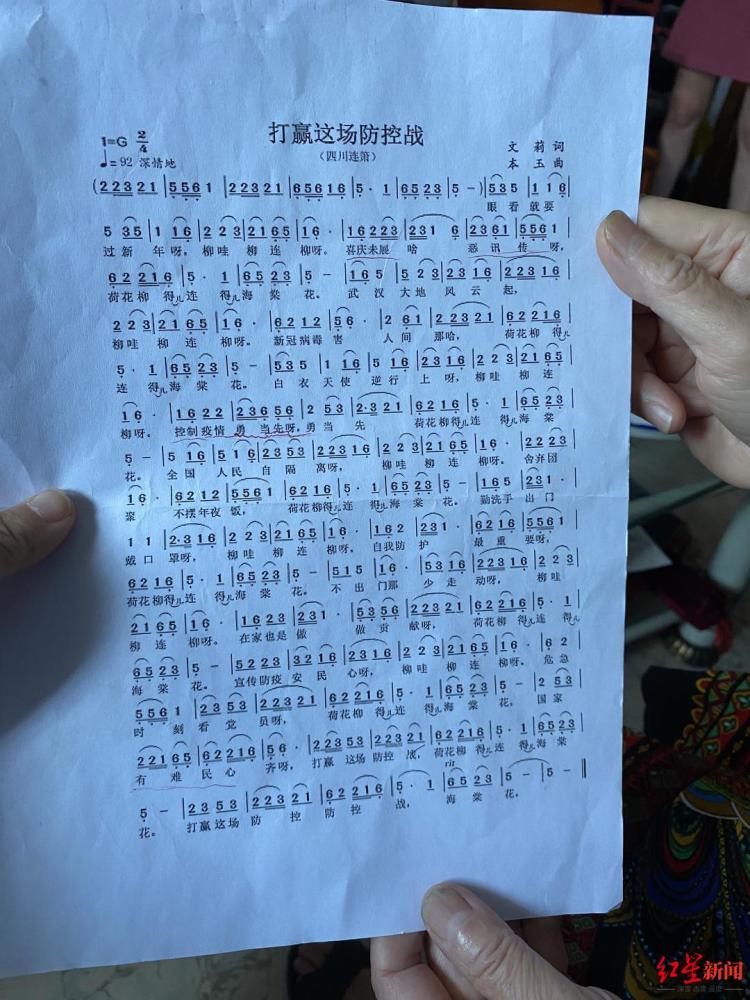 打赢这场防控战
1=G 2/4
(四川连箫)
文 莉 词
♩=92 深情地
本 玉 曲
(2 2 3 2 1 | 5 5 6 1 | 2 2 3 2 1 | 5 5 6 1 | 6 5 6 1 6 | 5 · 1 | 6 5 2 3 | 5 – ) | 5 3 5 | 1 1 6 |
眼看 就要
5 3 5 | 1 1 6 | 2 2 3 | 2 1 6 5 | 1 6 · | 1 6 2 2 3 | 2 3 1 6 | 2 3 6 1 | 5 5 6 1 |
过 新 年呀, 柳哇 柳连 柳呀。 喜庆未展 啥 恶讯 传 呀,
6 2 2 1 6 | 5 · 1 | 6 5 2 3 | 5 – | 1 6 5 | 5 2 3 | 1 2 3 | 2 2 3 1 6 |
荷花柳 得儿连 得儿海棠 花。 武汉 大地 风云 起,
2 2 3 | 2 1 6 5 | 1 6 · | 6 2 1 2 | 5 6 · | 2 6 1 | 2 2 3 2 1 | 6 2 2 1 6 |
柳哇 柳连 柳呀。 新冠病毒 害 人间 那哈, 荷花柳 得儿
5 · 1 | 6 5 2 3 | 5 – | 5 3 5 | 2 3 5 | 2 3 1 | 2 3 1 6 | 2 2 3 | 2 1 6 5 |
连 得儿海棠 花。 白衣 天使 逆行 上呀, 柳哇 柳连
1 6 · | 1 6 2 2 | 6 2 3 6 5 6 | 2 5 3 | 2 · 3 2 1 | 6 2 2 1 6 | 5 · 1 | 6 5 2 3 |
柳呀。 控制疫情 勇 当先呀, 勇当 先 荷花柳得儿连 得儿海棠
5 – | 1 6 5 | 5 1 6 | 2 3 5 3 | 2 3 1 6 | 2 2 3 | 2 1 6 5 | 1 6 · | 6 2 2 |
花。 全国 人民 自隔 离呀, 柳哇 柳连 柳呀。 舍弃团
1 6 · | 6 2 1 2 | 5 5 6 | 6 2 2 1 6 | 5 · 1 | 6 5 2 3 | 5 – | 1 6 5 | 5 2 3 |
聚 不摆年夜 饭, 荷花柳得儿连 得儿海棠 花。 勤洗手 出门
1 1 | 2 · 3 1 6 | 2 2 3 | 2 1 6 5 | 1 6 · | 1 6 2 | 2 3 1 | 6 1 6 | 5 5 6 1 |
戴口 罩呀, 柳哇 柳连 柳呀。 自我防护 最重 要呀,
6 2 2 1 6 | 5 · 1 | 6 5 2 3 | 5 – | 5 1 5 | 1 1 6 | 2 3 1 6 | 2 2 3 1 6 | 2 2 3 |
荷花柳得儿连 得儿海棠 花。 不出门那 少走 动呀, 柳哇
2 1 6 5 | 1 6 · | 1 2 2 3 | 2 3 1 | 5 3 5 6 | 2 2 3 2 1 | 6 2 2 1 6 | 5 · 1 |
柳连 柳呀。 在家也是 做 做贡 献呀, 荷花柳 得儿连 得儿
6 5 2 3 | 5 – | 2 2 3 5 | 2 3 1 6 | 2 3 1 6 | 2 2 3 | 2 1 6 5 | 1 6 · | 6 2 |
海棠 花。 宣传防疫 安民 心呀, 柳哇 柳连 柳呀。 危急
5 5 6 | 2 3 5 3 | 2 2 3 1 | 6 2 2 1 6 | 5 · 1 | 6 5 2 3 | 5 – | 5 3 5 |
时 刻看党 员呀, 荷花柳 得儿连 得儿海棠 花。 国家
2 2 1 | 6 2 2 1 6 | 5 6 · | 2 3 5 3 | 2 2 3 2 1 | 6 2 2 1 6 | 5 · 1 | 6 5 2 3 |
有 难民心 齐呀, 打赢 这场防控 战, 荷花柳得儿连 得儿海棠
rit
5 – | 2 3 5 3 | 2 2 3 2 1 | 6 2 2 1 6 | 5 · 1 | 6 5 2 3 | 5 – | 5 – ‖
花。 打赢这场 防 控 防 控 战, 海棠 花。
红星新闻
深度 态度 温度